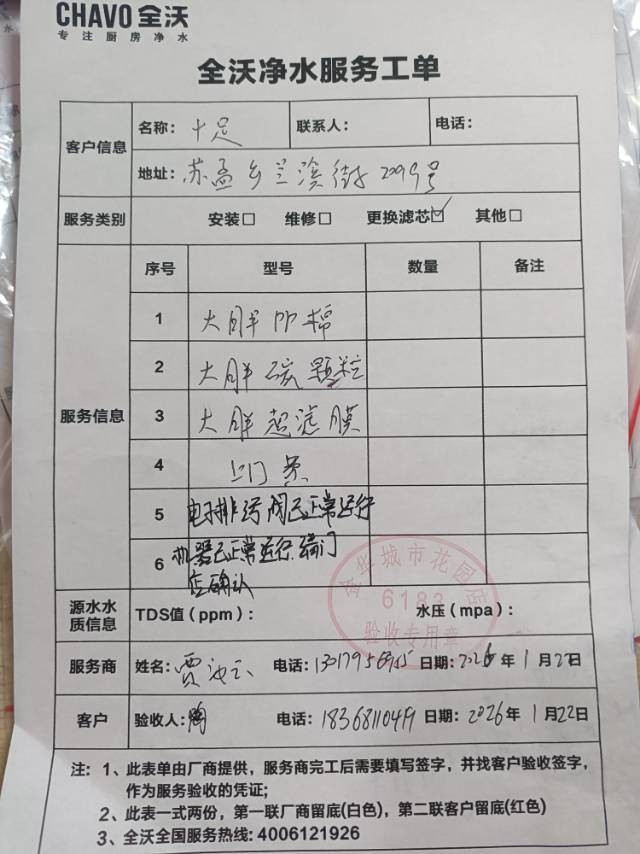 CHAVO 全沃
专注厨房净水
全沃净水服务工单
客户信息
名称： 十足 联系人： 电话：
地址： 苏孟乡兰溪街2099号
服务类别 安装□ 维修□ 更换滤芯☑ 其他□
服务信息
序号 型号 数量 备注
1 大胖PP棉
2 大胖碳颗粒
3 大胖超滤膜
4 上门费
5 电子排污阀已正常运行
6 机器已正常运行.请门
店确认
源水水质信息 TDS值（ppm）： 水压（mpa）：
华城市花园店
6183
验收专用章
服务商 姓名： 贾 电话： 日期：2026年1月22日
客户 验收人：陶 电话： 日期：2026年1月22日
注：1、此表单由厂商提供，服务商完工后需要填写签字，并找客户验收签字，
作为服务验收的凭证;
2、此表一式两份，第一联厂商留底(白色)，第二联客户留底(红色)
3、全沃全国服务热线: 4006121926